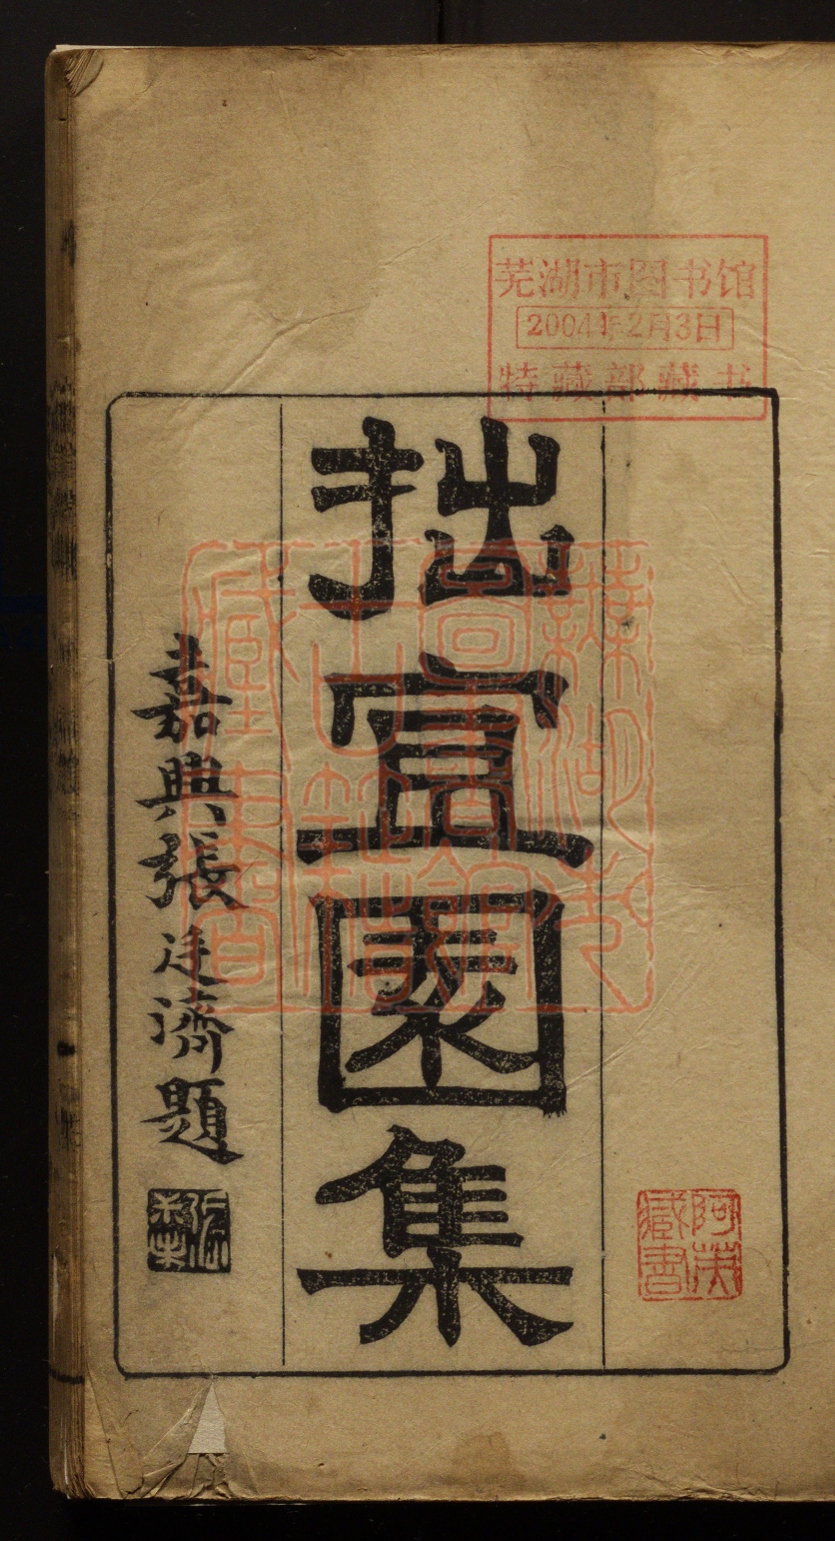 芜湖市图书馆
2004年2月3日
特藏部藏书
阿英藏書
拙宜園集
嘉興張廷濟題